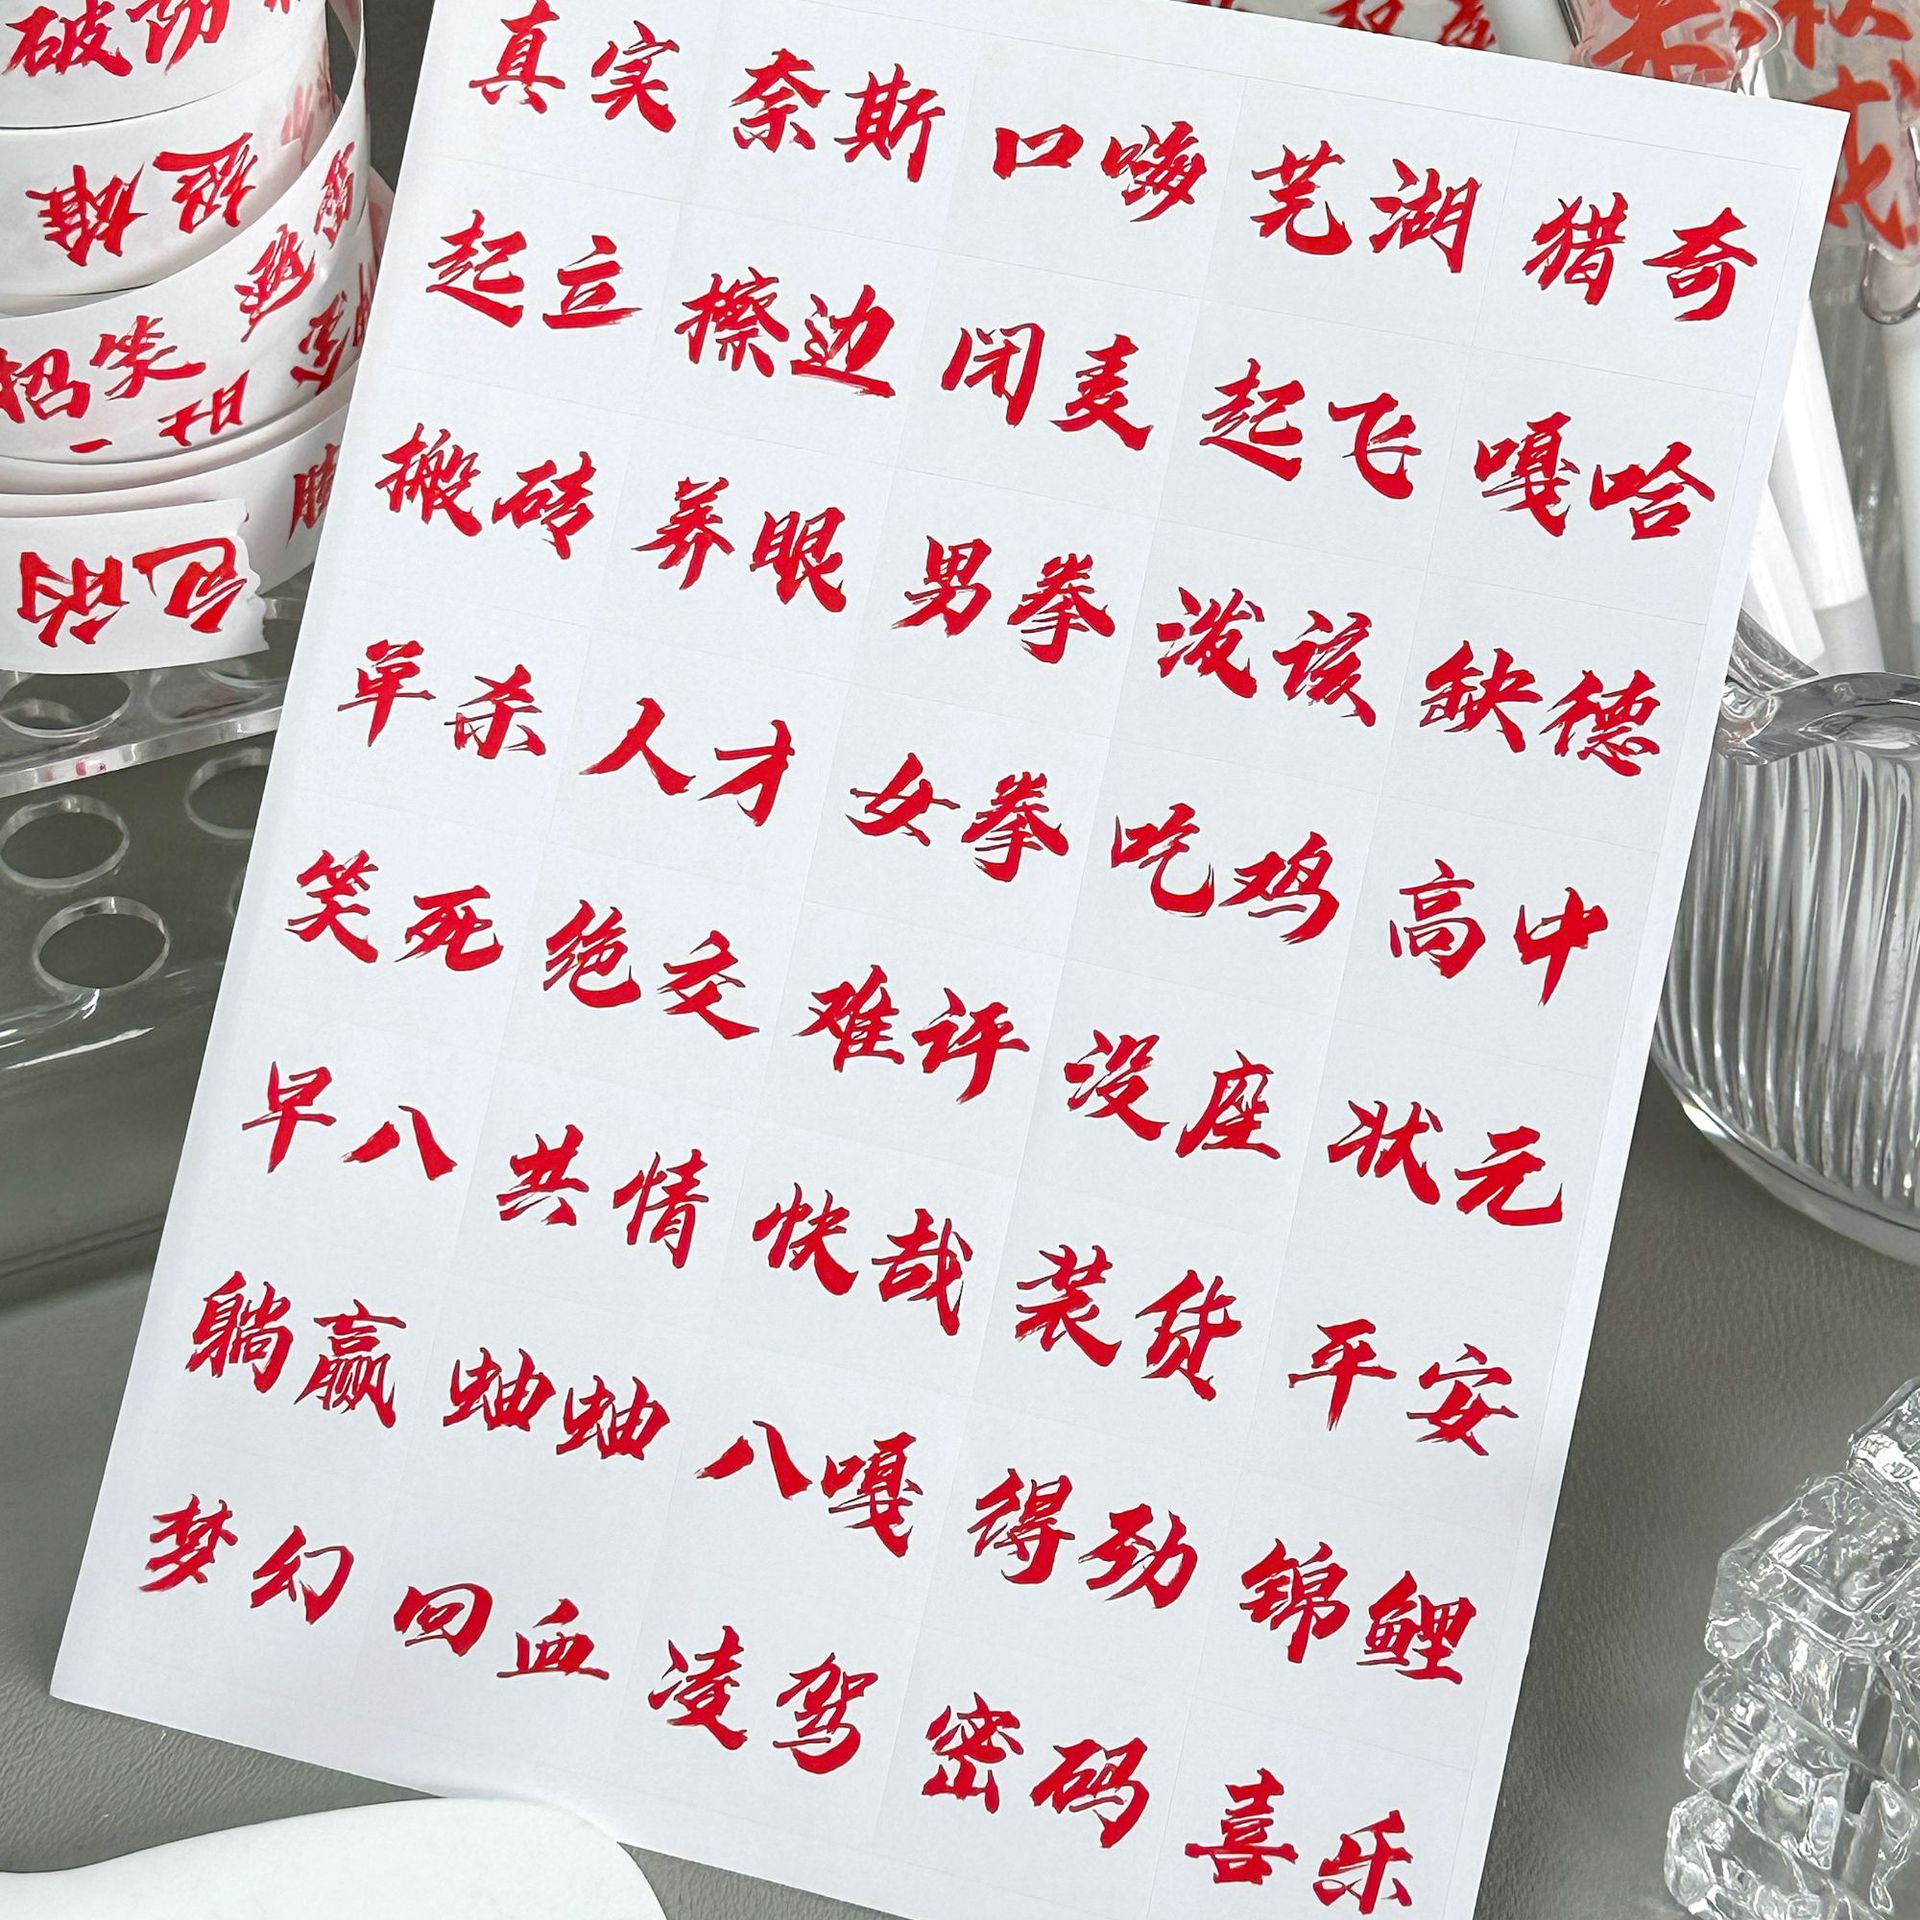 真实 奈斯 口嗨 芜湖 猎奇
起立 擦边 闭麦 起飞 嘎哈
搬砖 养眼 男拳 泼该 缺德
单杀 人才 女拳 吃鸡 高中
笑死 绝交 难评 没座 状元
早八 共情 快哉 装货 平安
躺赢 蚰蚰 八嘎 得劲 锦鲤
梦幻 回血 凌驾 密码 喜乐
破防
招笑
色的